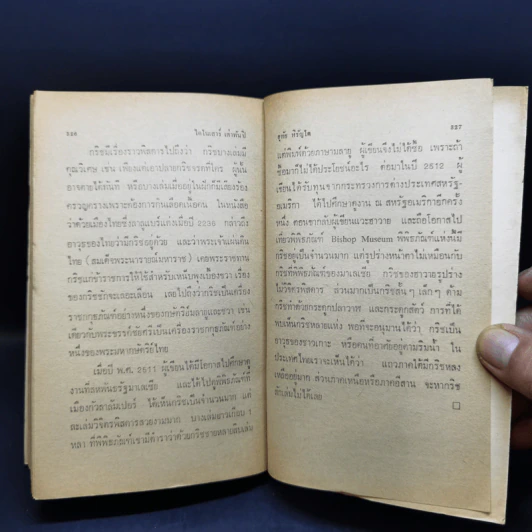 ๒๒๖ ไดโนเสาร์ เต่าพันปี
กริชมีเรื่องราวพิสดารไปถึงว่า กริชบางเล่มมี
คุณวิเศษ เช่น เพียงแต่เอาปลายกริชจรดที่ใคร ผู้นั้น
อาจตายได้ทันที หรือมีบางเล่มเมื่ออยู่ในฝักก็มีเสียงร้อง
ครวญครางเพราะต้องการกินเลือดกินเนื้อคน ในหนังสือ
ว่าด้วยเมืองไทยซึ่งลาลูแบร์แต่งเมื่อปี 2236 กล่าวถึง
อาวุธของไทยว่ามีกริชอยู่ด้วย และว่าพระเจ้าแผ่นดิน
ไทย (สมเด็จพระนารายณ์มหาราช) เคยพระราชทาน
กริชแก่ข้าราชการให้ใช้สำหรับเหน็บพุงเบื้องขวา เรื่อง
ของกริชชักจะเลอะเลือน เลยไปถึงว่ากริชเป็นเครื่อง
ราชกกุธภัณฑ์อย่างหนึ่งของกษัตริย์มลายูและชวา เช่น
เดียวกับพระขรรค์ชัยศรีเป็นเครื่องราชกกุธภัณฑ์อย่าง
หนึ่งของพระมหากษัตริย์ไทย
เมื่อปี พ.ศ. 2511 ผู้เขียนได้มีโอกาสไปศึกษาดู
งานที่สหพันธรัฐมาเลเซีย และได้ไปดูพิพิธภัณฑ์ที่
เมืองกัวลาลัมเปอร์ ได้เห็นกริชเป็นจำนวนมาก แต่
ละเล่มวิจิตรพิสดารสวยงามมาก บางเล่มยาวเกือบ 1
หลา ที่พิพิธภัณฑ์เขามีตำราว่าด้วยกริชขายหลายสิบเล่ม
สุทัย หิรัญโต ๒๒๗
แต่พิมพ์ด้วยภาษามลายู ผู้เขียนจึงไม่ได้ซื้อ เพราะถ้า
ซื้อมาก็ไม่ได้ประโยชน์อะไร ต่อมาในปี 2512 ผู้
เขียนได้รับทุนจากกระทรวงการต่างประเทศสหรัฐ-
อเมริกา ได้ไปศึกษาดูงาน ณ สหรัฐอเมริกาอีกครั้ง
หนึ่ง ตอนขากลับผู้เขียนแวะฮาวาย และถือโอกาสไป
เที่ยวพิพิธภัณฑ์ Bishop Museum พิพิธภัณฑ์แห่งนี้มี
กริชอยู่เป็นจำนวนมาก แต่รูปร่างหน้าตาไม่เหมือนกับ
กริชที่พิพิธภัณฑ์ของมาเลเซีย กริชของฮาวายรูปร่าง
ไม่วิจิตรพิสดาร ส่วนมากเป็นกริชสั้นๆ เล็กๆ ด้าม
กริชทำด้วยกระดูกปลาวาฬ และกระดูกสัตว์ การที่ได้
พบเห็นกริชหลายแห่ง พอที่จะอนุมานได้ว่า กริชเป็น
อาวุธของชาวเกาะ หรือคนที่อาศัยอยู่ตามริมน้ำ ใน
ประเทศไทยเราจะเห็นได้ว่า แถวภาคใต้มีกริชหลง
เหลืออยู่มาก ส่วนภาคเหนือหรือภาคอีสาน จะหากริช
สักเล่มไม่ได้เลย